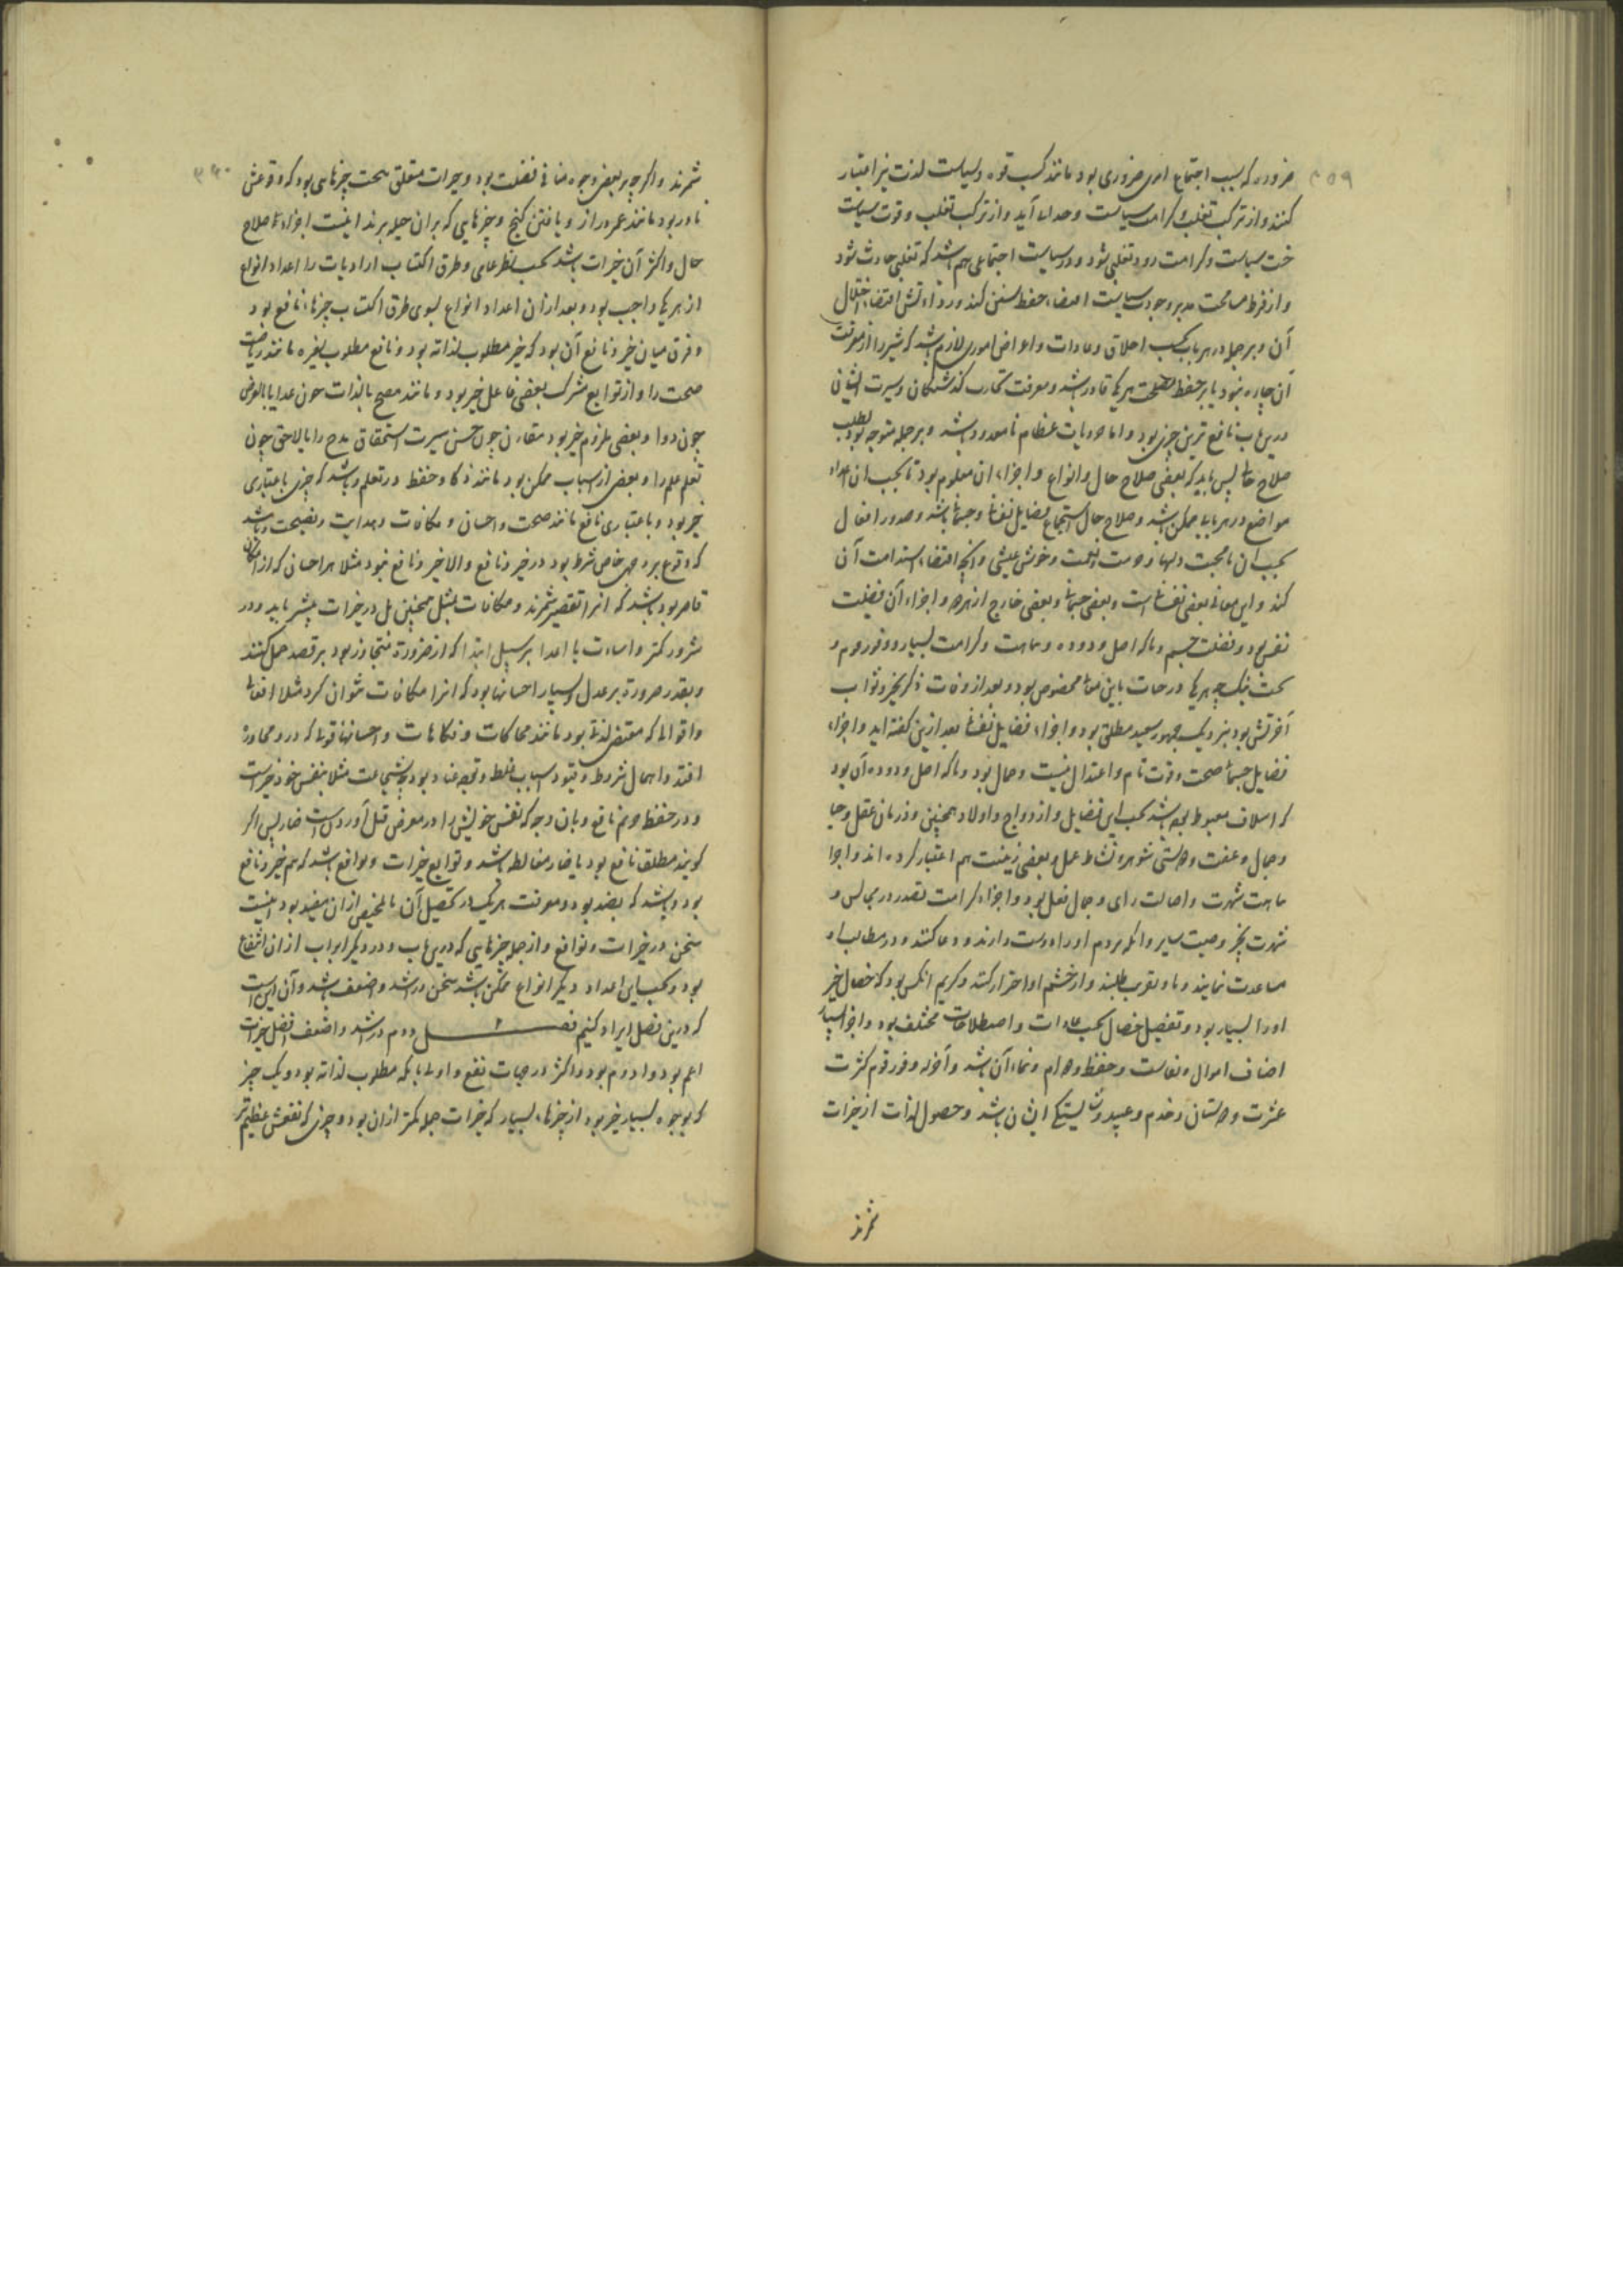 ۳۵۹
ضروره که سبب اجتماع امری ضروری بود مانند کسب قوه و سیاست لذت نیز اعتبار
کنند و از ترکب تغلب و کرامت سیاست وحدانی آید و از ترکب تغلب و قوت سیاست
خست سیاست و کرامت رود تغلبی شود و در سیاست اجتماعی هم باشد که تغلبی حادث شود
و از فرط مسامحت مدبر وجود سیاست اقتضاء حفظ سنن کند و رداءتش اقتضاء اختلال
آن و بر جمله در هر باب بحسب اخلاق و عادات و اعراض اموری لازم باشد که مشیر را از معرفت
آن چاره نبود تا بر حفظ مصلحت هر یک قادر باشد و معرفت تجارب گذشتگان و سیرت ایشان
درین باب نافع ترین چیزی بود و اما جزویات عظام نامعدود باشد و بر جمله متوجه بود بطلب
صلاح حالی پس باید که بعضی صلاح حال و انواع و اجزاء ان معلوم بود تا بحسب ان اعداد
مواضع در هر بابی ممکن باشد و صلاح حال استجماع فضایل نفسانی و جسمانی باشد و صدور افعال
بحسب ان با محبت دلها و خوش عیشی و انچ اقتضاء استدامت آن
کند و این معانی بعضی نفسانی است و بعضی جسمانی و بعضی خارج از هر دو و اجزاء آن فضیلت
نفس بود و فضیلت جسم و ذکاء اصل و دوده و نباهت و کرامت بسیار و وفور و
بخت نیک هر یک درجات باین معانی مخصوص بود و بعد از وفات ذکر بخیر و ثواب
آخرتش بود بنزدیک جمهور سعید مطلق بود و اجزاء فضایل نفسانی بعد ازین گفته اید و اجزاء
فضایل جسمانی صحت و قوت تام و اعتدال بنیت و جمال بود و ذکاء اصل و دوده آن بود
که اسلاف مغبوط بوده باشند بحسب این فضایل و ازدواج و اولاد همچنین و در زنان عقل و حیا
و جمال و عفت و دوستی شوهر و نشاط عمل و بعضی زینت هم اعتبار کرده اند و اجزا
نباهت شهرت و اصالت رای و جمال فعل بود و اجزاء کرامت تصدر در مجالس و
شهرت بخیر و صیت سایر و انکه مردم او را دوست دارند و دعا کنند و در مطالب او
مساعدت نمایند و باو تقرب طلبند و از خشم او احتراز کنند و کریم انکس بود که خصال خیر
او را بسیار بود و تفصیل خصال بحسب عادات و اصطلاحات مختلف بود و اجزا بسیار
اضاف اموال و نفاست و حفظ و دوام و نماء آن باشد و آخر و وفور قوم کثرت
عشرت و دوستان و خدم و عبید و شایستگی ایشان باشد و حصول لذات از خیرات
شمرند
۳۶۰
شمرند و اگر چه بر بعضی وجوه منافی فضیلت بود و خیرات متعلق ببخت چیزهایی بود که وقوعش
نادر بود مانند عمر دراز و یافتن کنج و چیزهایی که بر ان حیله برند اینست اجزاء صلاح
حال و اکثر آن خیرات باشد بحسب نظر عامی و طرق اکتساب ارادیات را اعداد انواع
از هر یک واجب بود و بعد از ان اعداد انواع بسوی طرق اکتساب چیزهاء نافع بود
و فرق میان خیر و نافع آن بود که خیر مطلوب لذاته بود و نافع مطلوب لغیره مانند ریاضت
صحت را و از توابع مشترک بعضی فاعل خیر بود و مانند مصح بالذات چون غذا یا بالعرض
چون دوا و بعضی ملزوم خیر بود مقارن چون حسن سیرت استحقاق مدح را یا لاحق چون
تعلم علم را و بعضی از اسباب ممکن بود مانند ذکا و حفظ در تعلم و باشد که چیزی باعتباری
خیر بود و باعتباری نافع مانند صحت و احسان و مکافات و هدایت و نصیحت و باشد
که وقوع بر وجهی خاص شرط بود در خیر و نافع و الا خیر و نافع نبود مثلا هر احسان که از امکان
قاصر بود باشد که انرا تقصیر شمرند و مکافات بمثل همچنین بل در خیرات بیشتر باید و در
شرور کمتر و اساءت با اعدا بر سبیل ابتدا که از ضرورة متجاوز بود بر قصد حمل کنند
و بقدر ضرورة بر عدل و بسیار احسانها بود که انرا مکافات نتوان کرد مثلا افعالی
و اقوالی که مقتضی لذتی بود مانند محاکات و فکاهات و احسانها قولی که در محاوره
افتد و اهمال شروط و قیود اسباب غلط و بود و شجاعت مثلا بنفس خود خیرست
و در حفظ حرم نافع و بان وجه که نفس خویش را در معرض قتل آوردن است ضار پس اگر
گویند مطلقا نافع بود یا ضار مغالطه باشد و توابع خیرات و نوافع باشد که هم خیر و نافع
بود و باشد که بضد بود و معرفت هر یک در تحصیل آن یا تخلص از ان مفید بود اینست
سخن در خیرات و نوافع و از جمله چیزهایی که درین باب و در دیگر ابواب از ان انتفاع
بود و بحسب این اعداد دیگر انواع ممکن باشد سخن در اشد و اضعف باشد و آن این است
که درین فصل ایراد کنیم فصل دوم در اشد و اضعف افضل خیرات
اعم بود و ادوم بود و اکثر در جهات نفع و اولی بانکه مطلوب لذاته بود و یک چیز
که بوجوه بسیار خیر بود از چیزهاء بسیار که خیرات جمله کمتر از ان بود و چیزی که نفعش عظیم تر